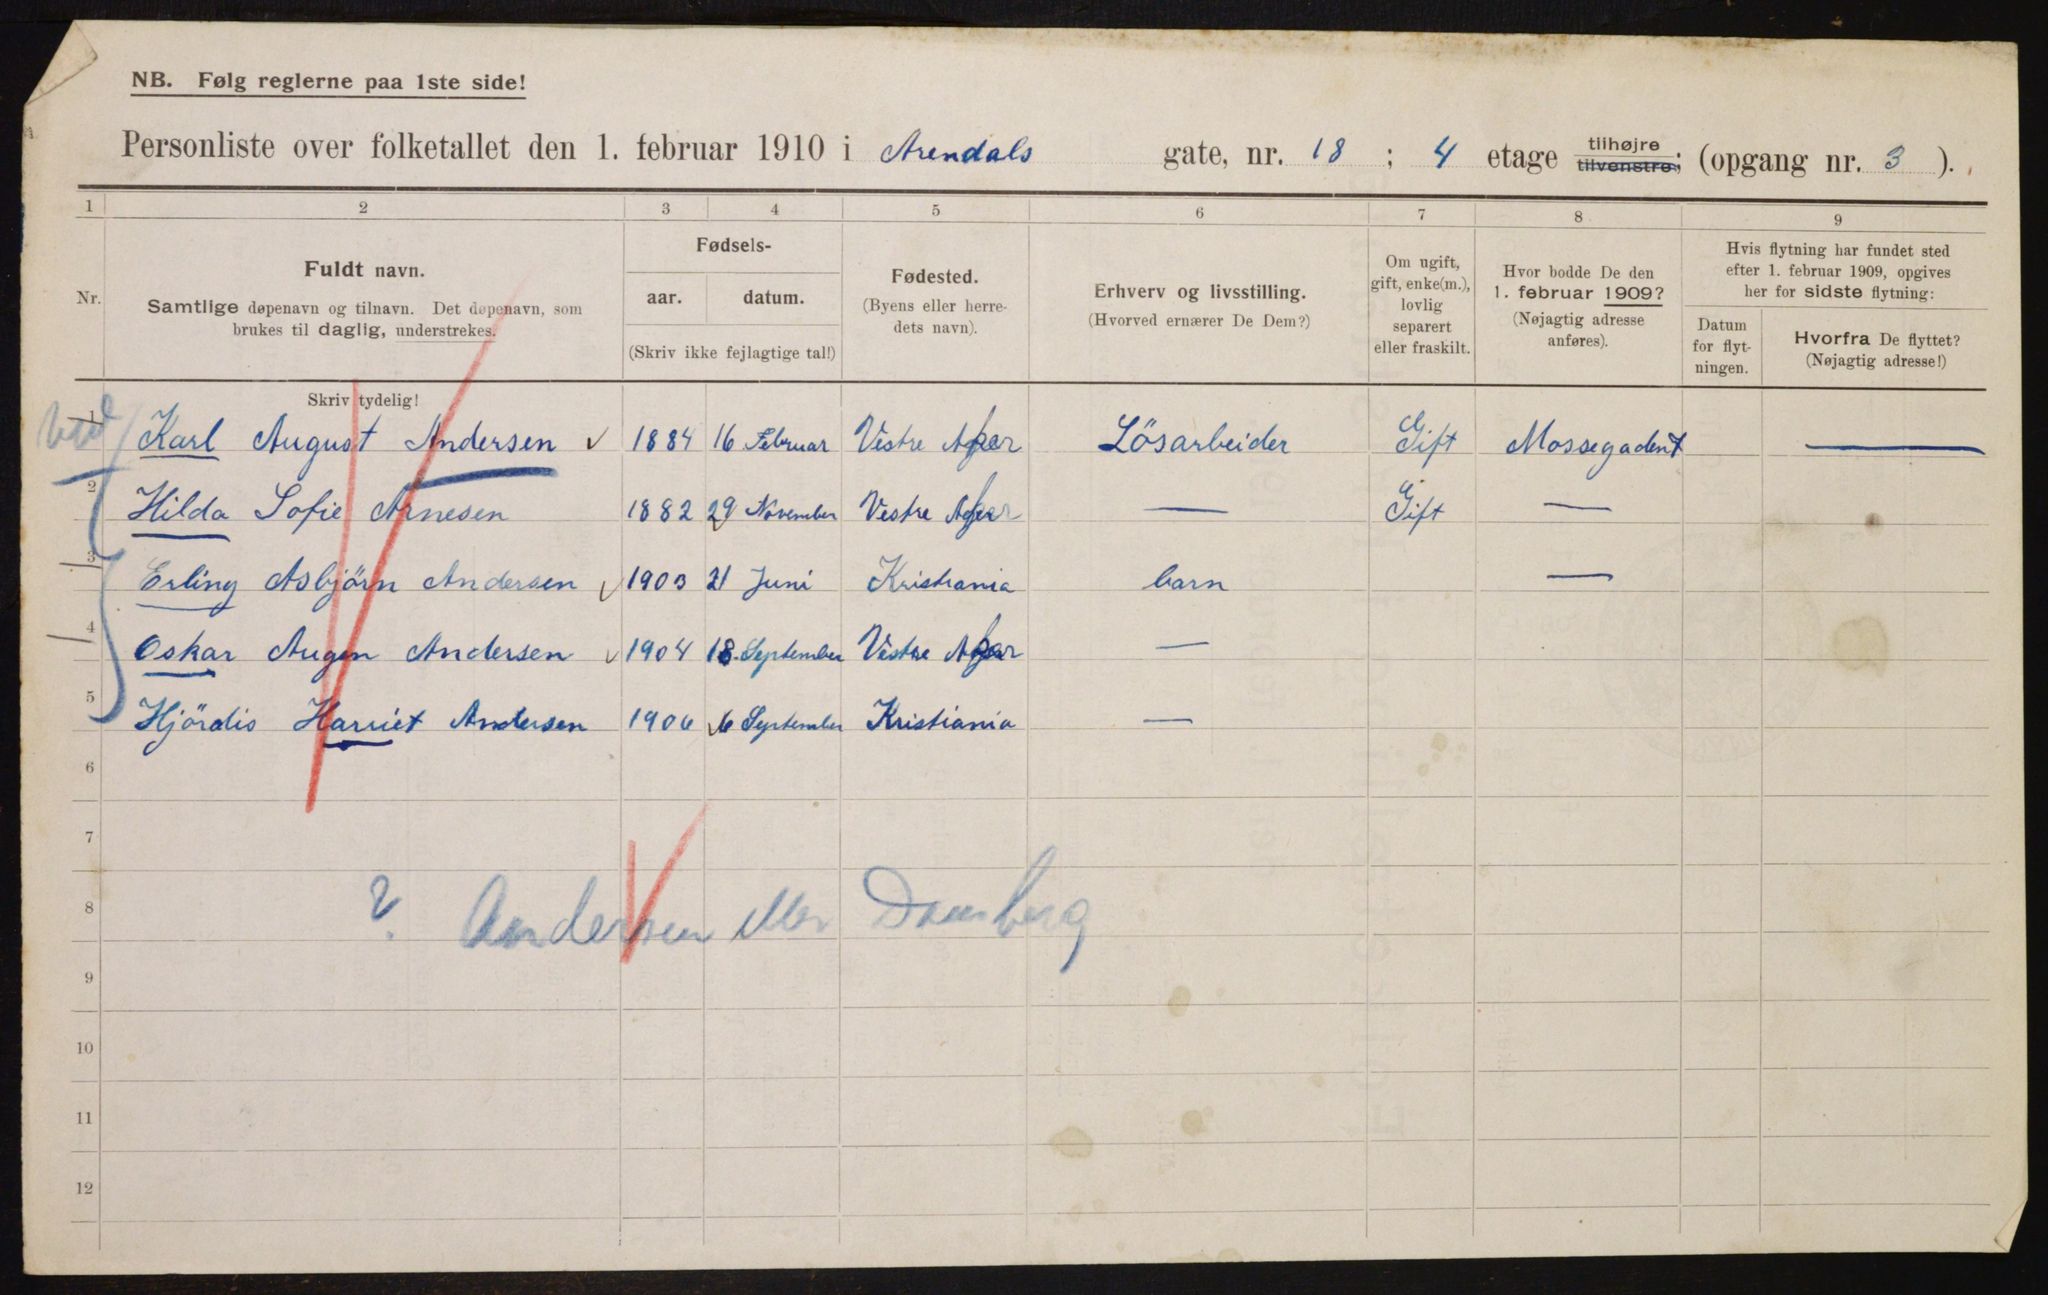 NB. Følg reglerne paa 1ste side!
Personliste over folketallet den 1. februar 1910 i Arendals gate, nr. 18 ; 4 etage tilhøjre tilvenstre; (opgang nr. 3 ).
1 2 3 4 5 6 7 8 9
Nr.
Fuldt navn.
Samtlige døpenavn og tilnavn. Det døpenavn, som
brukes til daglig, understrekes.
Skriv tydelig!
Fødsels-
aar. datum.
(Skriv ikke fejlagtige tal!)
Fødested.
(Byens eller herre-
dets navn).
Erhverv og livsstilling.
(Hvorved ernærer De Dem?)
Om ugift,
gift, enke(m.),
lovlig
separert
eller fraskilt.
Hvor bodde De den
1. februar 1909?
(Nøjagtig adresse
anføres).
Hvis flytning har fundet sted
efter 1. februar 1909, opgives
her for sidste flytning:
Datum
for flyt-
ningen.
Hvorfra De flyttet?
(Nøjagtig adresse!)
1 Karl August Andersen 1884 16 Februar Vestre Aker Lösarbeider Gift Mossegaden —
2 Hilda Sofie Arnesen 1882 29 November Vestre Aker — Gift —
3 Erling Asbjörn Andersen 1903 21 Juni Kristiania barn —
4 Oskar Augen Andersen 1904 18 September Vestre Aker —
5 Hjördis Harriet Andersen 1906 6 September Kristiania —
6
7
8 ? Andersen eller
9
10
11
12